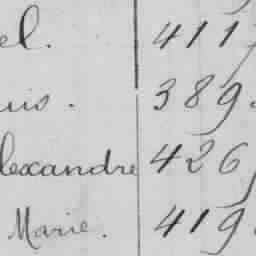 el. 411
uis. 389
lexandre 426
Marie. 419